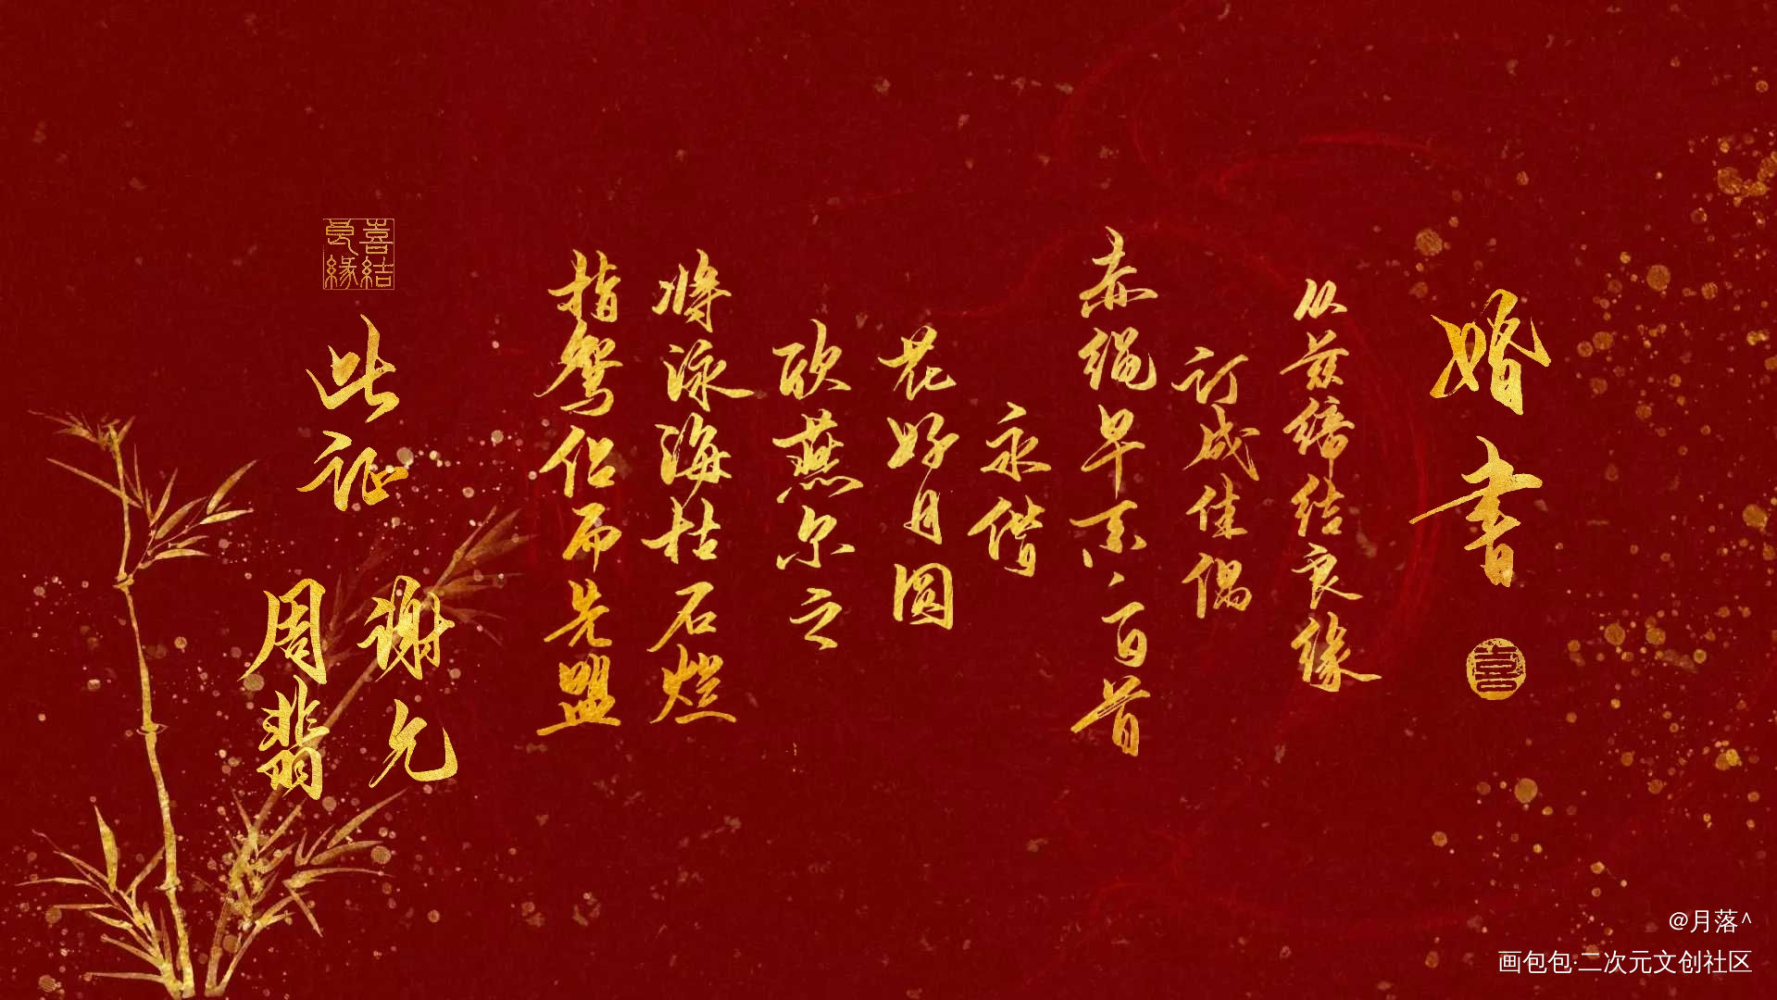 婚书
囍
从兹缔结良缘
订成佳偶
赤绳早系白首
永偕
花好月圆
欣燕尔之
将泳海枯石烂
指鸳侣而先盟
喜结良緣
此证
谢允
周翡
@月落^
画包包·二次元文创社区